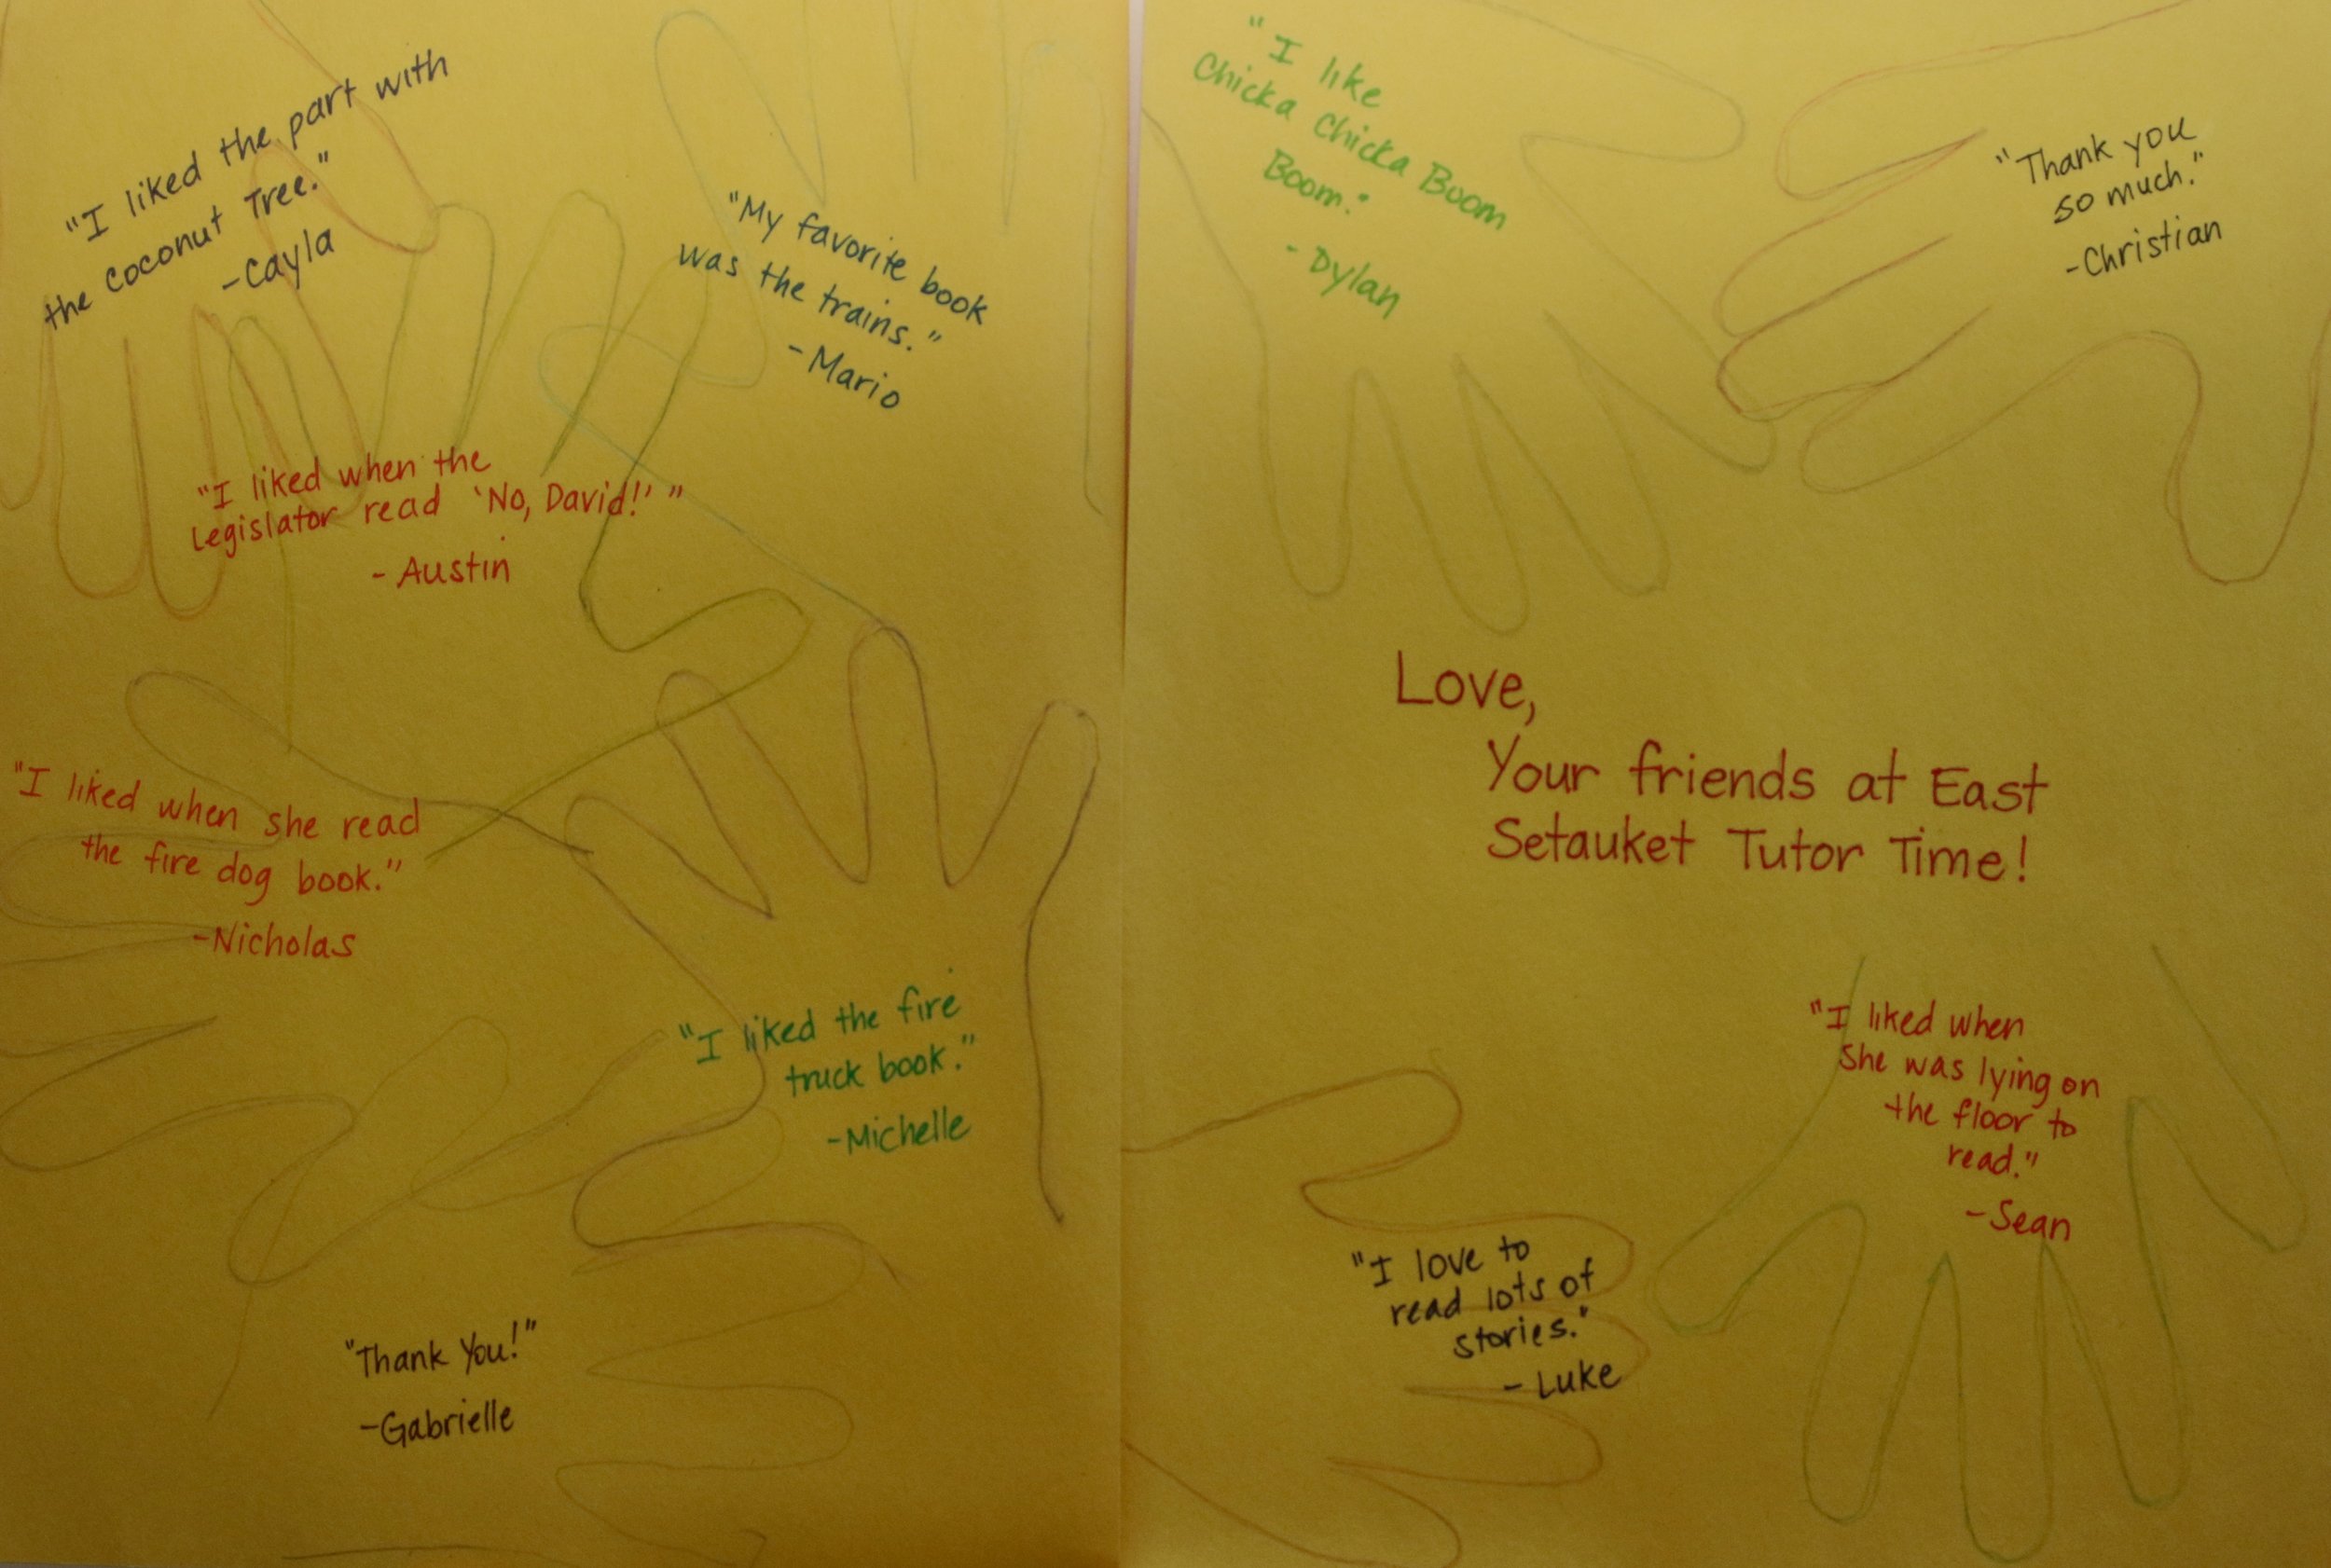 "I liked the part with
the Coconut Tree."
-Cayla
"My favorite book
was the trains."
-Mario
"I liked when the
Legislator read 'No, David!' "
- Austin
"I liked when she read
the fire dog book."
-Nicholas
"I liked the fire
truck book."
-Michelle
"Thank You!"
-Gabrielle
"I like
Chicka Chicka Boom
Boom."
-Dylan
"Thank you
so much."
-Christian
Love,
Your friends at East
Setauket Tutor Time!
"I liked when
she was lying on
the floor to
read."
-Sean
"I love to
read lots of
stories."
- Luke